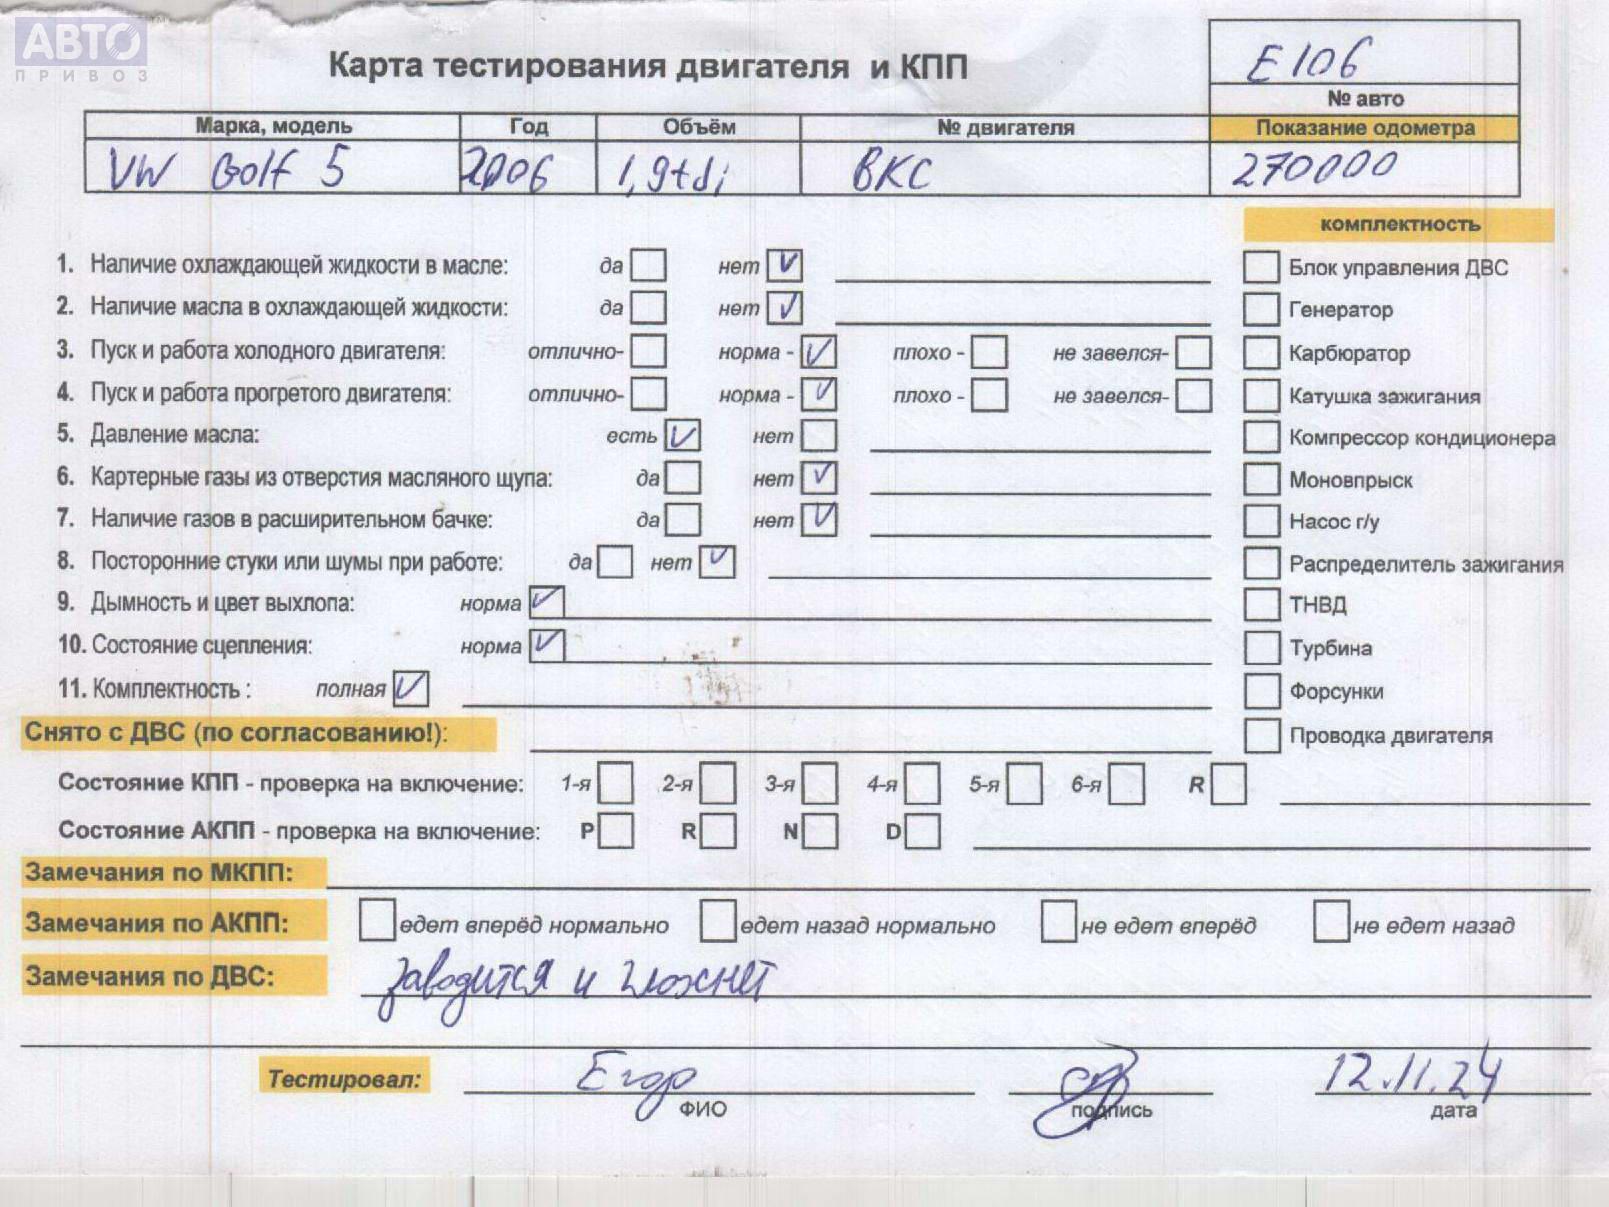 АВТО
ПРИВОЗ
Карта тестирования двигателя и КПП
E106
№ авто
Марка, модель Год Объём № двигателя Показание одометра
VW Golf 5 2006 1,9tdi BKC 270000
комплектность
1. Наличие охлаждающей жидкости в масле: да нет Блок управления ДВС
2. Наличие масла в охлаждающей жидкости: да нет Генератор
3. Пуск и работа холодного двигателя: отлично- норма - плохо - не завелся- Карбюратор
4. Пуск и работа прогретого двигателя: отлично- норма - плохо - не завелся- Катушка зажигания
5. Давление масла: есть нет Компрессор кондиционера
6. Картерные газы из отверстия масляного щупа: да нет Моновпрыск
7. Наличие газов в расширительном бачке: да нет Насос г/у
8. Посторонние стуки или шумы при работе: да нет Распределитель зажигания
9. Дымность и цвет выхлопа: норма ТНВД
10. Состояние сцепления: норма Турбина
11. Комплектность : полная Форсунки
Снято с ДВС (по согласованию!): Проводка двигателя
Состояние КПП - проверка на включение: 1-я 2-я 3-я 4-я 5-я 6-я R
Состояние АКПП - проверка на включение: P R N D
Замечания по МКПП:
Замечания по АКПП: едет вперёд нормально едет назад нормально не едет вперёд не едет назад
Замечания по ДВС: заводится и глохнет
Тестировал: Егор 12.11.24
ФИО подпись дата